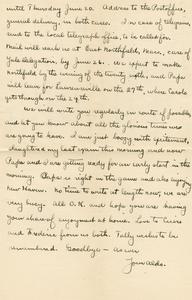 until Thursday June 20. Address to the Postoffice,
general delivery, in both cases. In case of telegrams
send to the local telegraph office, to be called for.
Mail will reach us at East Northfield, Mass., care of
Yale delegation, by June 26. We expect to make
Northfield by the evening of the twenty sixth, and Papa
will leave for Lawrenceville on the 27th, where Carole
gets through on the 29th.
We will write you regularly in both if possible,
and let you know about all the glorious times we
are going to have. I am just boggy with excitement,
slaughtered my last exam this morning and now
Papa and I are getting ready for an early start in the
morning. Papa is right in the game and also enjoying
New Haven. No time to write at length now, we are
very busy. All O.K. and hope you are having
your share of enjoyment at home. Love to
and Frederic from us both. Tally wishes to be
remembered. Goodbye - as ever